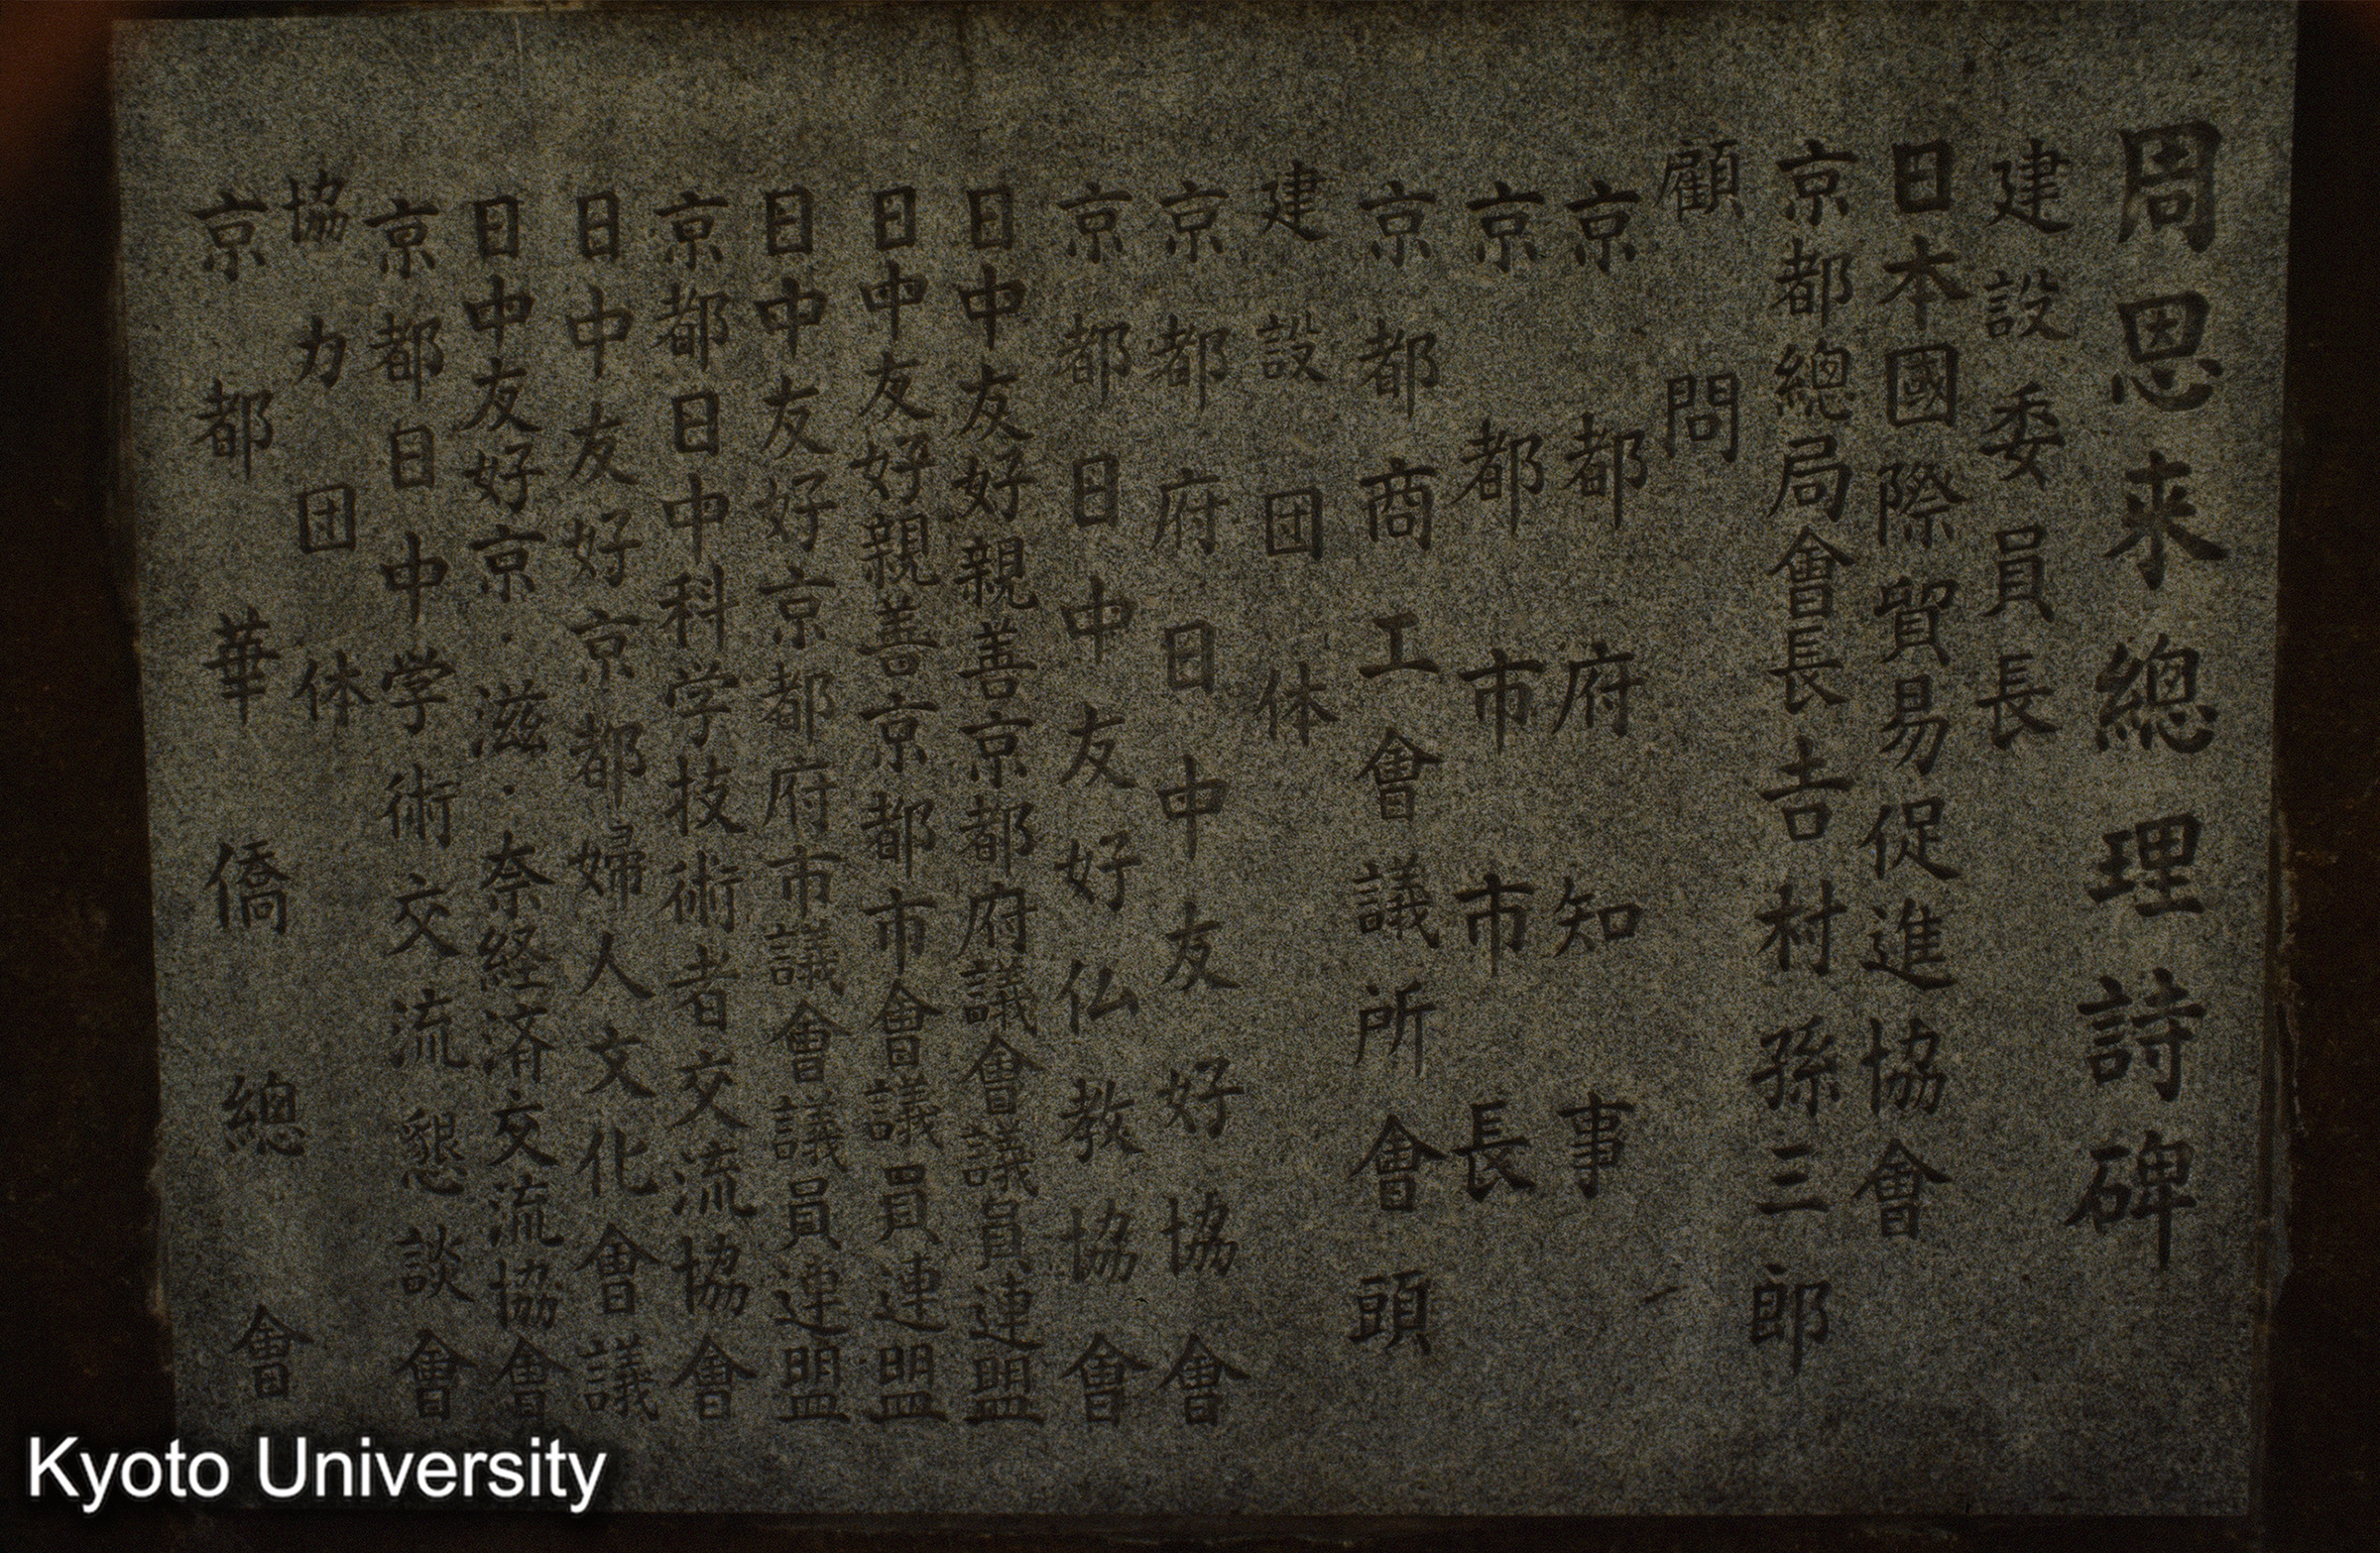 周恩来總理詩碑
建設委員長
日本國際貿易促進協會
京都總局會長吉村孫三郎
顧問
京都府知事
京都市市長
京都商工會議所會頭
建設団体
京都府日中友好協會
京都日中友好仏教協會
日中友好親善京都府議會議員連盟
日中友好親善京都市會議員連盟
日中友好京都府市議會議員連盟
京都日中科学技術者交流協會
日中友好京都婦人文化會議
日中友好京・滋・奈経済交流協會
京都日中学術交流懇談會
協力団体
京都華僑總會
Kyoto University